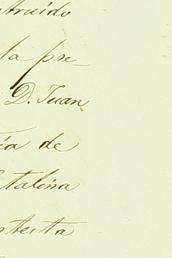 struido
la pre-
D. Juan
ía de
atalina
ntesta